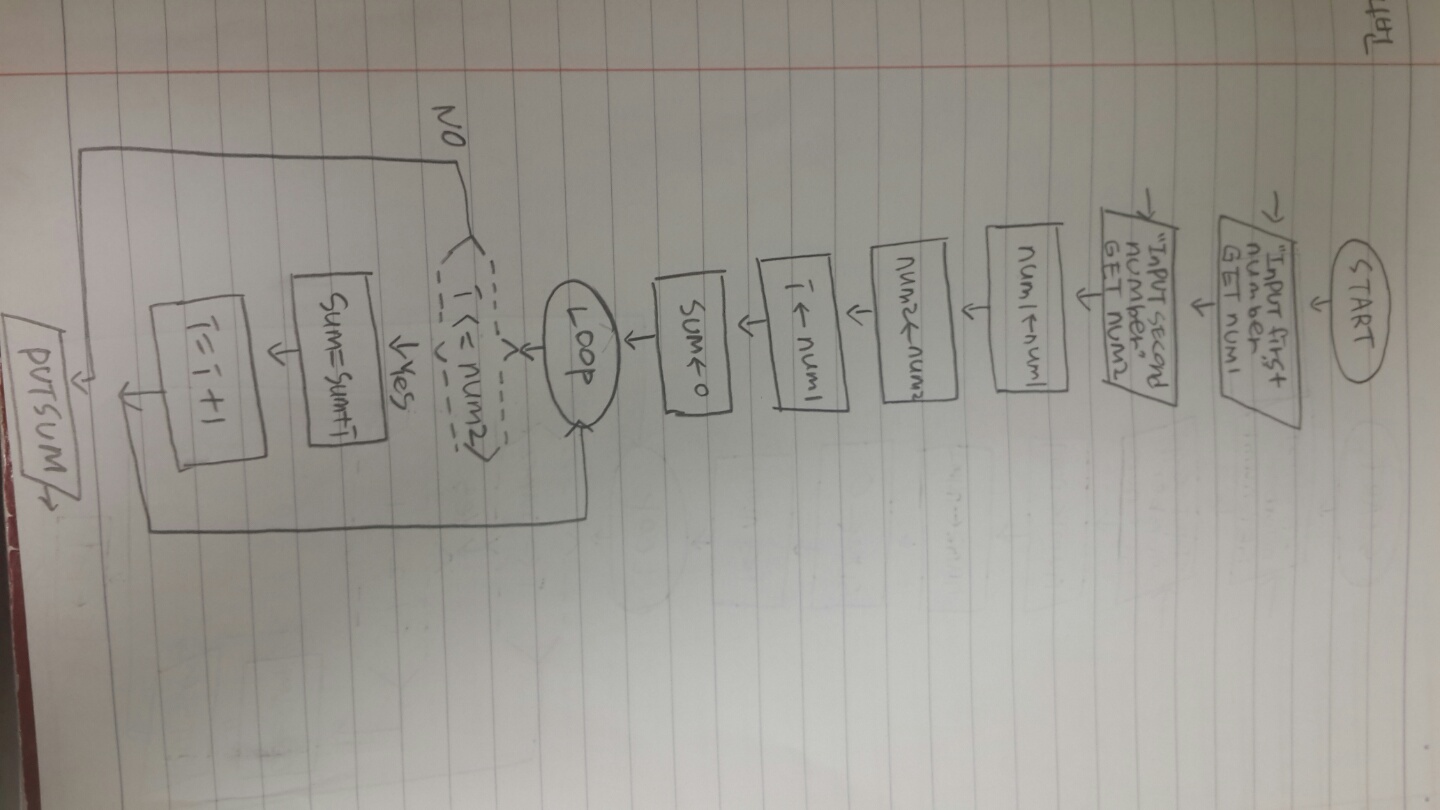 START
"INPUT first
number"
GET num1
"INPUT second
number"
GET num2
num1←num1
num2←num2
i←num1
sum←0
LOOP
i<=num2
NO
Yes
sum=sum+i
i=i+1
PUTSUM